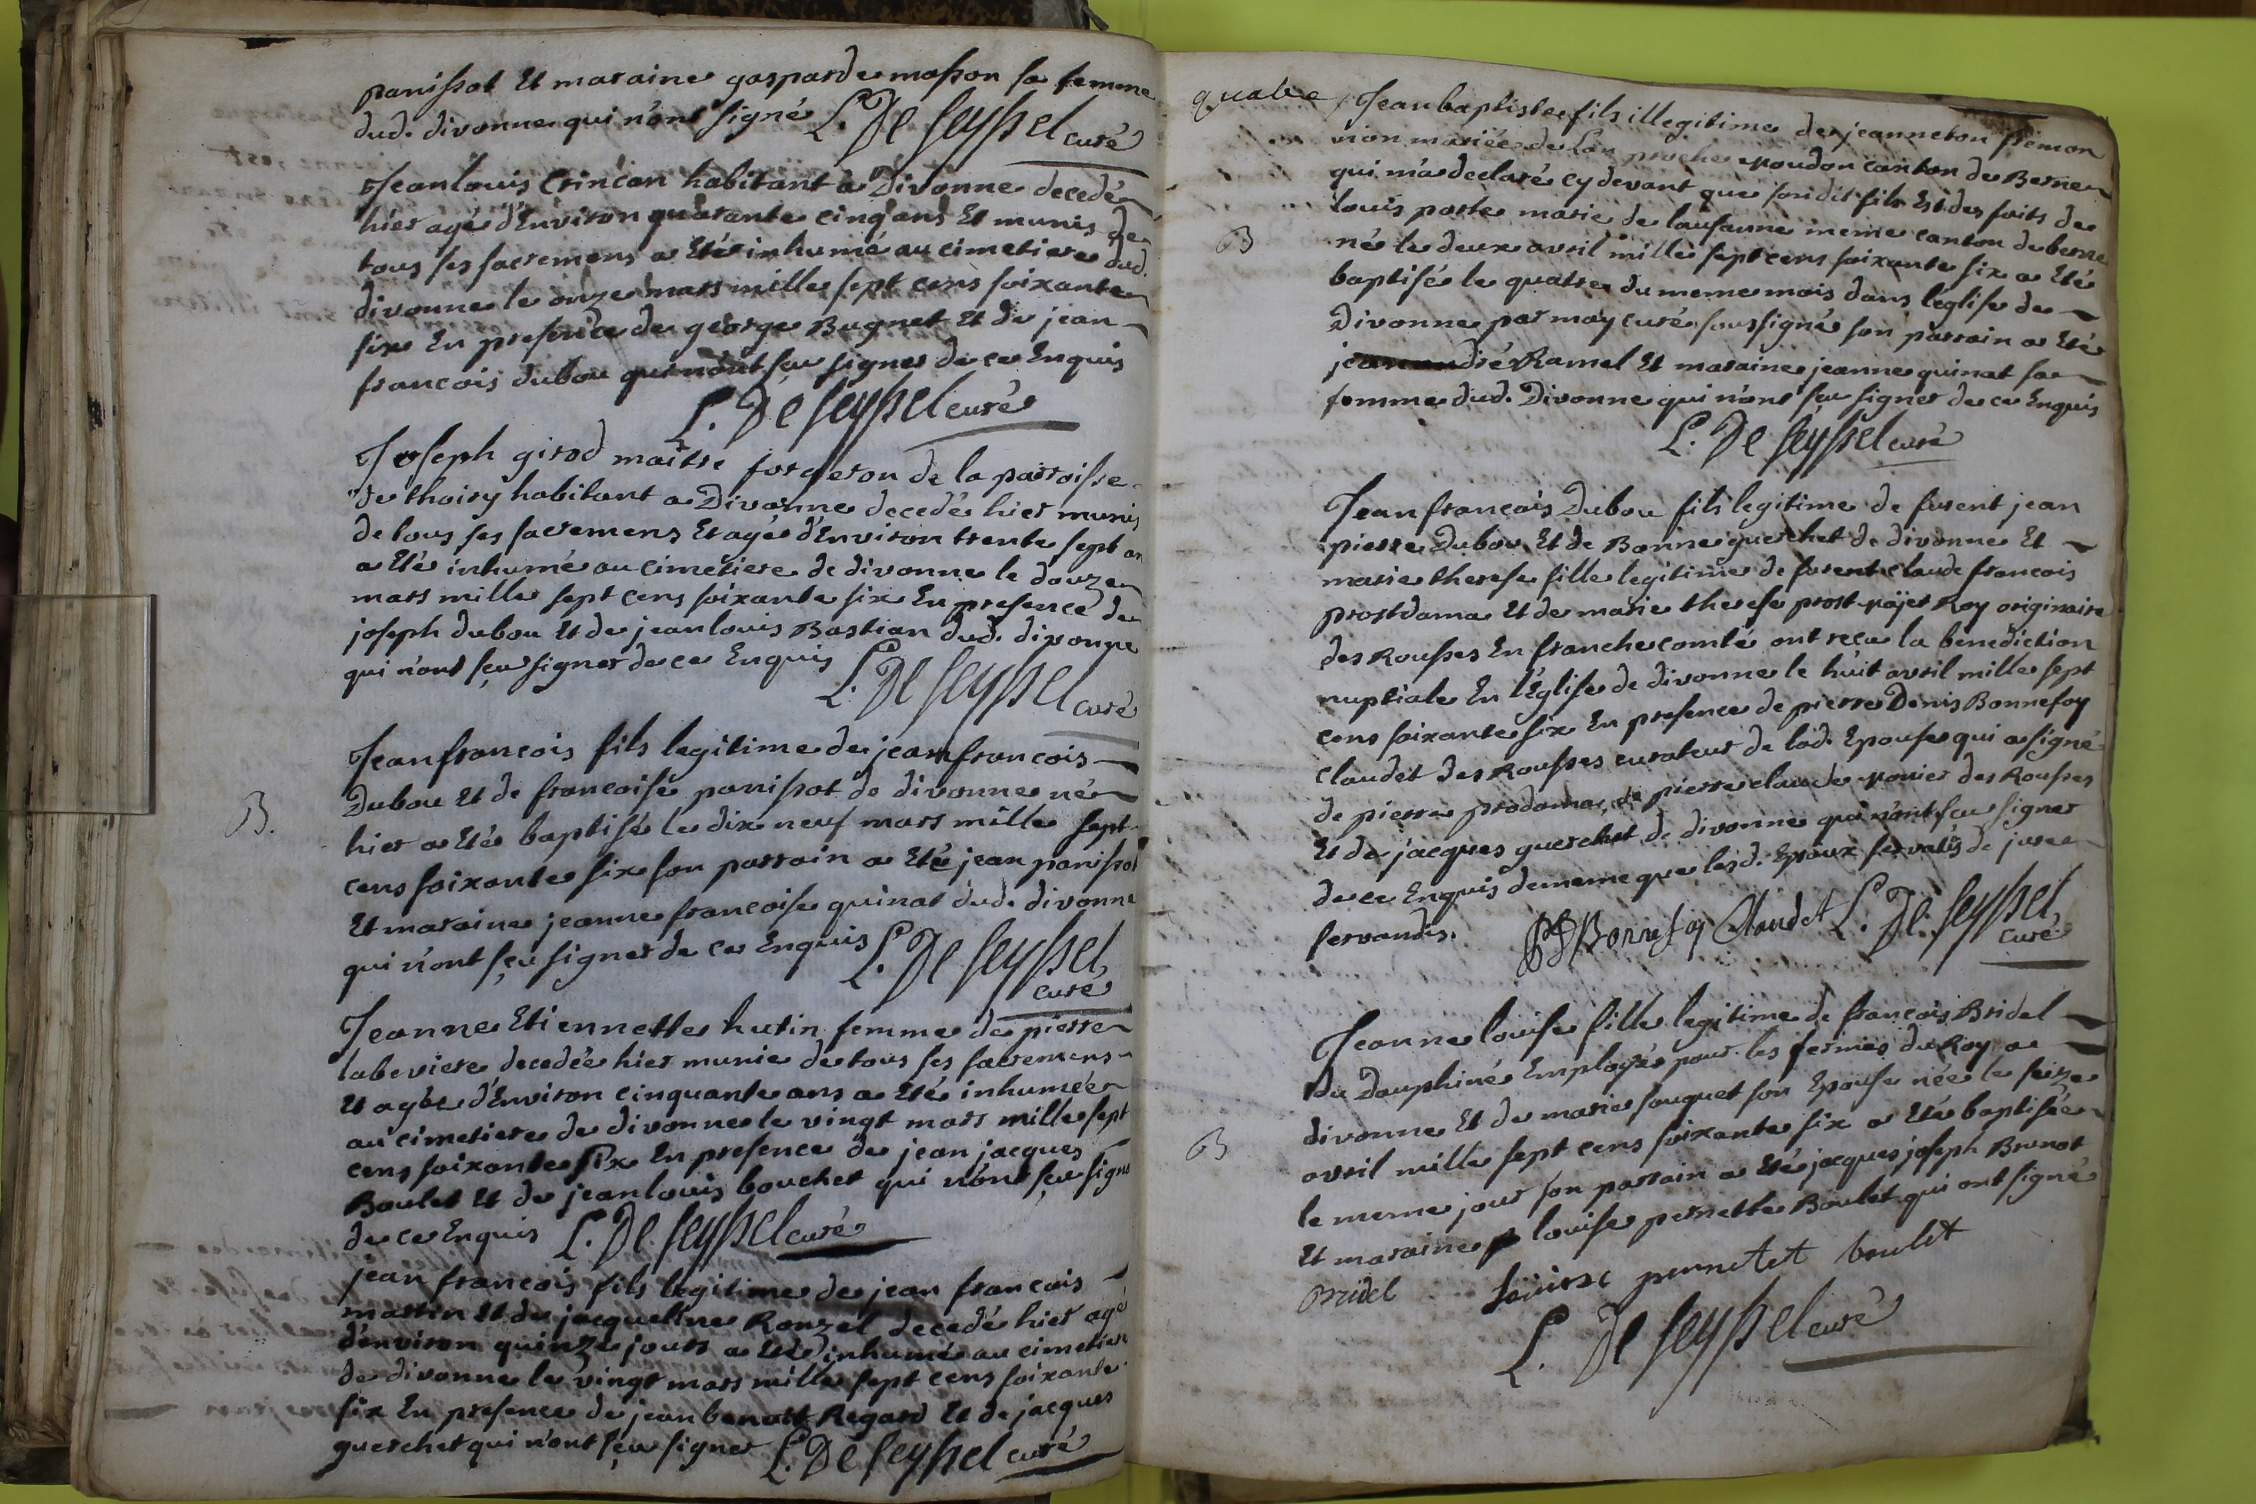 panissot Et maraine gasparde masson sa femme
dud. divonne qui n'ont signé L. De Seyssel curé
Jean louis Crincan habitant a Divonne decedé
hier agé d'Environ quarante cinq ans Et munis de
tous ses sacremens a Eté inhumé au cimetiere dud.
divonne le onze mars mille sept cens soixante
six En presence de george Bugnet Et de jean
francois dubou qui n'ont sçu signer de ce Enquis
L. De Seyssel curé
Joseph girod maître forgeron de la parroisse
de thoiry habitant a Divonne decedé hier munis
de tous ses sacremens Et agé d'Environ trente sept an
a Eté inhumé au cimetiere de divonne le douze
mars mille sept cens soixante six En presence de
joseph dubou Et de jean louis Bastian dud. divonne
qui n'ont sçu signer de ce Enquis L. De Seyssel
curé
Jean francois fils legitime de jean francois
B. Dubou Et de francoise panissot de divonne né
hier a Eté baptisé le dix neuf mars mille sept
cens soixante six son parrain a Eté jean panissot
Et maraine jeanne francoise quinat dud. divonne
qui n'ont sçu signer de ce Enquis L. De Seyssel
curé
Jeanne Etiennette hutin femme de pierre
labeviere decedée hier munie de tous ses sacremens
Et agée d'Environ cinquante ans a Eté inhumée
au cimetiere de divonne le vingt mars mille sept
cens soixante six En presence de jean jacques
Boulet Et de jean louis bouchet qui n'ont sçu signer
de ce Enquis L. De Seyssel curé
jean francois fils legitime de jean francois
martin Et de jacqueline Ronzel decedé hier agé
d'environ quinze jours a Eté inhumé au cimetiere
de divonne le vingt mars mille sept cens soixante
six En presence de jean benoit Regard Et de jacques
guerchet qui n'ont sçu signer L. De Seyssel curé
Jean baptiste fils illegitime de jeanneton
non mariée de proche moudon canton de Berne
qui m'a declaré cy devant que son dit fils Est des faits de
louis porte marie de lausanne meme canton de berne
B né le deux avril mille sept cens soixante six a Eté
baptisé le quatre du meme mois dans l'eglise de
Divonne par moy curé soussigné son parrain a Eté
jean andré Ramel Et maraine jeanne quinat sa
femme dud. Divonne qui n'ont sçu signer de ce Enquis
L. De Seyssel curé
Jean francois Dubou fils legitime de furent jean
pierre Dubou Et de Bonne guerchet de divonne Et
marie therese fille legitime de furent claude francois
prost dama Et de marie therese prost Roy originaire
des Rousses En franche comté ont reçu la benediction
nuptiale En l'Église de divonne le huit avril mille sept
cens soixante six En presence de pierre Denis Bonnefoy
Claudet des Rousses curateur de lad. Epouse qui a signé
de pierre prodama, de pierre claude des Rousses
Et de jacques guerchet de divonne qui n'ont sçu signer
de ce Enquis de meme que lesd. Epoux servatis de jure
servandis. PD Bonnefoy Claudet L. De Seyssel
curé
Jeanne louise fille legitime de francois Bridel
du Dauphiné Employé pour les fermes du Roy a
divonne Et de marie fouquet son Epouse née le seize
B avril mille sept cens soixante six a Eté baptisée
le meme jour son parrain a Eté jacques joseph Brunot
Et maraine louise pernette Boulet qui ont signé
Bridel louise pernetet boulet
L. De Seyssel curé